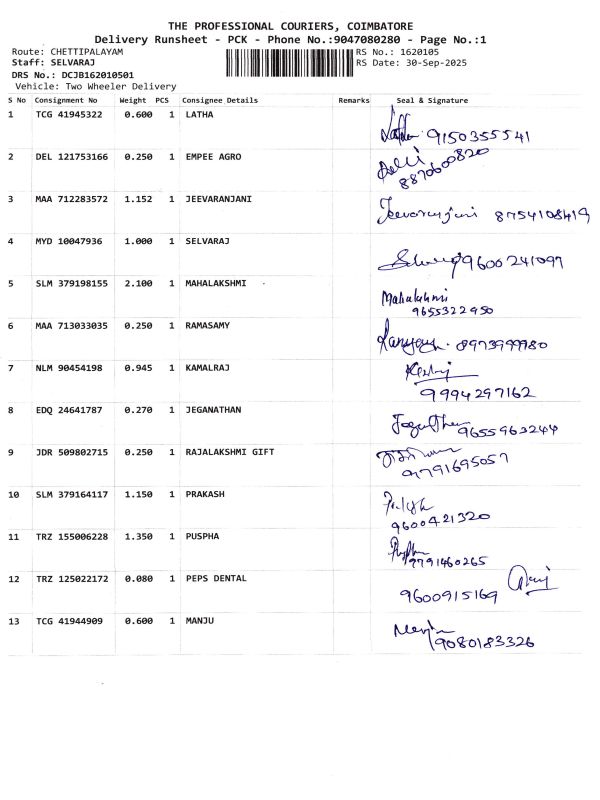 THE PROFESSIONAL COURIERS, COIMBATORE
Delivery Runsheet - PCK - Phone No.:9047080280 - Page No.:1
Route: CHETTIPALAYAM RS No.: 1620105
Staff: SELVARAJ RS Date: 30-Sep-2025
DRS No.: DCJB162010501
Vehicle: Two Wheeler Delivery
S No Consignment No Weight PCS Consignee Details Remarks Seal & Signature
1 TCG 41945322 0.600 1 LATHA
9150355541
2 DEL 121753166 0.250 1 EMPEE AGRO
3 MAA 712283572 1.152 1 JEEVARANJANI
Jeevaranjani 8754108419
4 MYD 10047936 1.000 1 SELVARAJ
9600241097
5 SLM 379198155 2.100 1 MAHALAKSHMI
Mahalakshmi
9655322950
6 MAA 713033035 0.250 1 RAMASAMY
8973999980
7 NLM 90454198 0.945 1 KAMALRAJ
9994297162
8 EDQ 24641787 0.270 1 JEGANATHAN
9655963244
9 JDR 509802715 0.250 1 RAJALAKSHMI GIFT
9791695057
10 SLM 379164117 1.150 1 PRAKASH
9600421320
11 TRZ 155006228 1.350 1 PUSPHA
9791460265
12 TRZ 125022172 0.080 1 PEPS DENTAL
9600915169
13 TCG 41944909 0.600 1 MANJU
9080183326